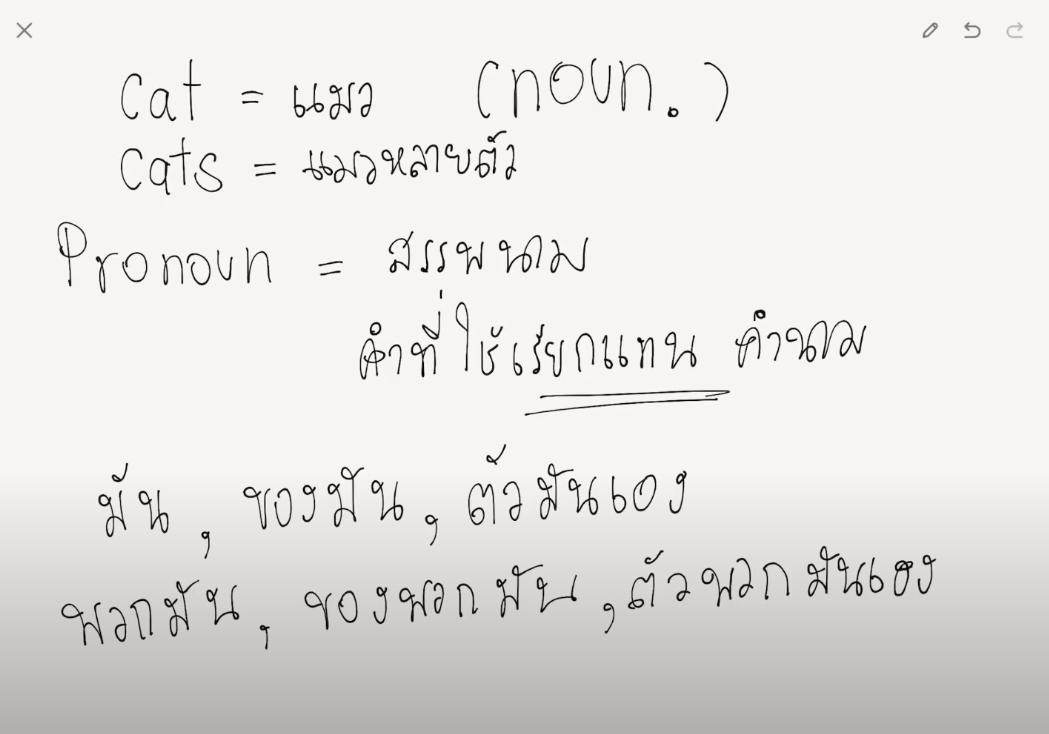 Cat = แมว (noun.)
Cats = แมวหลายตัว
Pronoun = สรรพนาม
คำที่ใช้เรียกแทน คำนาม
มัน, ของมัน, ตัวมันเอง
พวกมัน, ของพวกมัน, ตัวพวกมันเอง